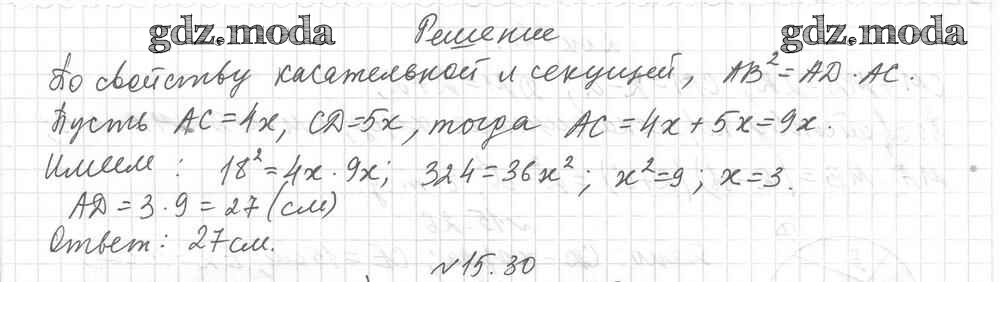 gdz.moda Решение gdz.moda
По свойству касательной и секущей, AB²=AD·AC.
Пусть AC=4x, CD=5x, тогда AC=4x+5x=9x.
Имеем: 18²=4x·9x; 324=36x²; x²=9; x=3.
AD=3·9=27 (см)
Ответ: 27см.
№15.30
gdz.moda gdz.moda